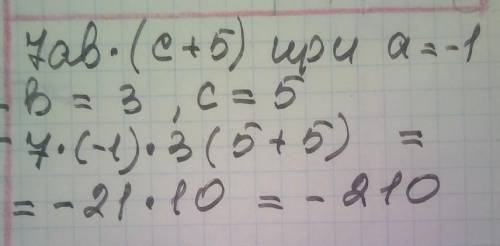 7ab·(c+5) при a=-1
b = 3, c = 5
7·(-1)·3(5+5) =
= -21·10 = -210